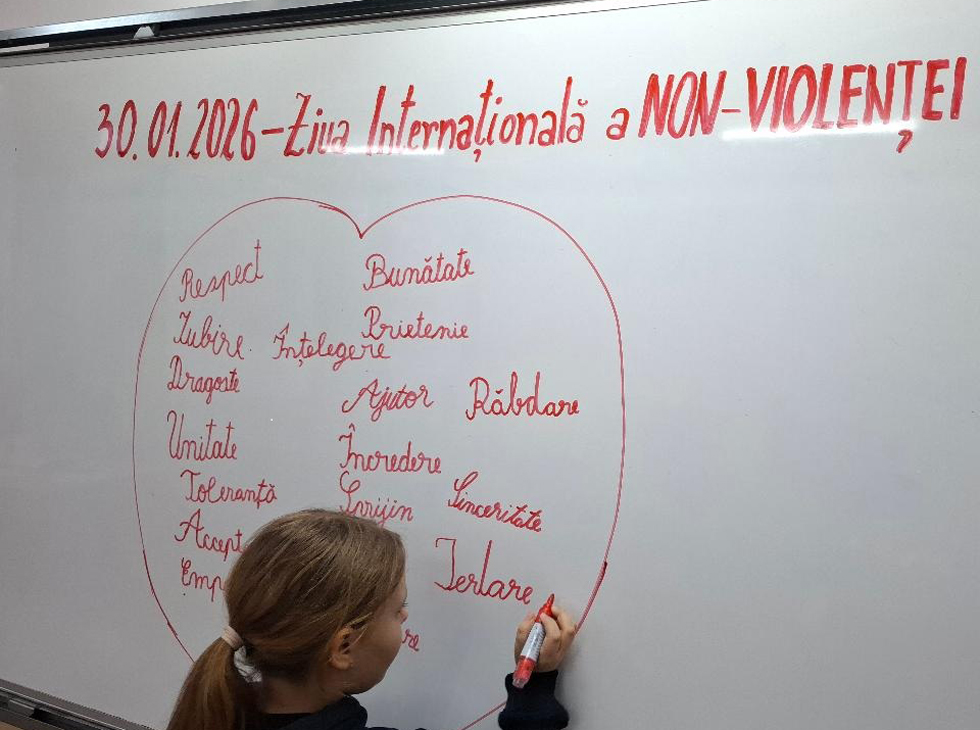 30.01.2026 – Ziua Internațională a NON-VIOLENȚEI
Respect
Bunătate
Iubire.
Prietenie
Înțelegere
Dragoste
Ajutor
Răbdare
Unitate
Încredere
Toleranță
Sprijin
Sinceritate
Accept
Iertare
Emp
re